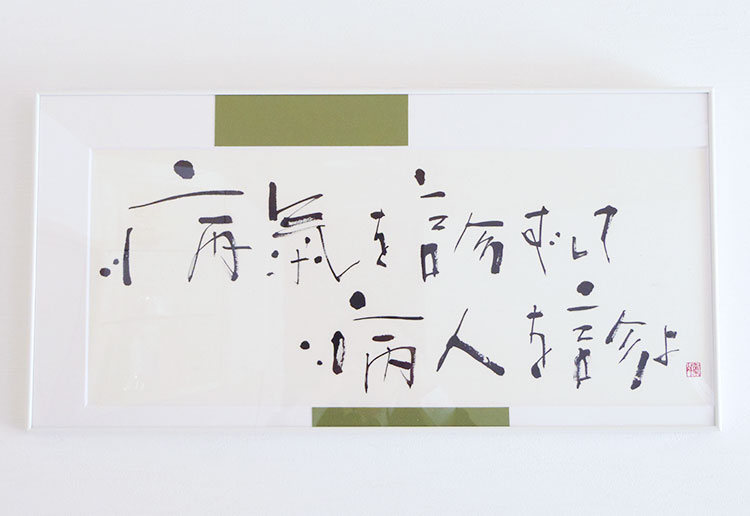 病氣を診ずして
病人を診よ